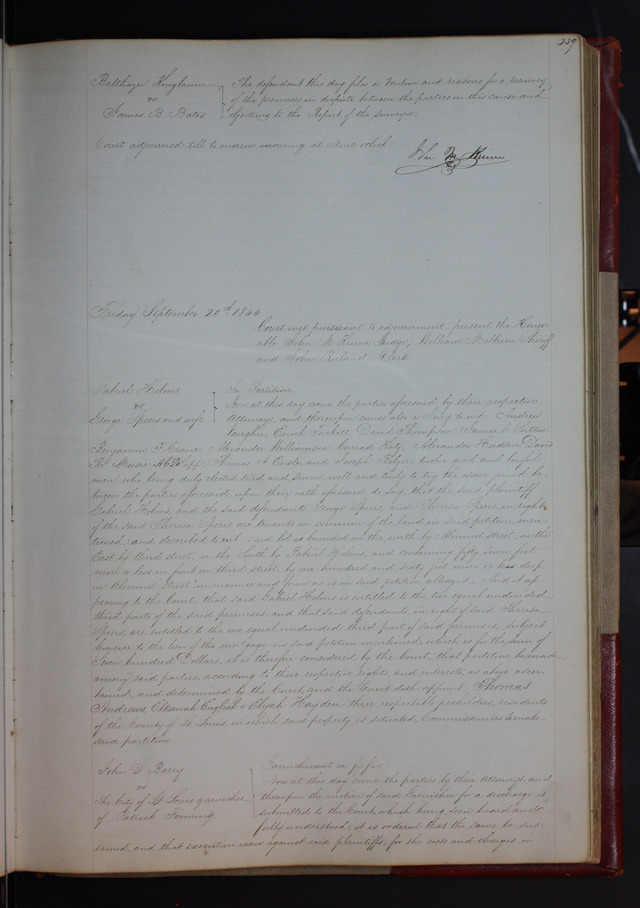 239
Balthazar The defendant this day files a motion and reasons for a resurvey
vs of the premises in dispute between the parties in this cause and
James B Bates objecting to the Report of the Surveyor.
Court adjourned till to morrow morning at Nine oclock
John M Krum
Friday September 20th 1844
Court met pursuant to adjournment, present the Honor-
able John M Krum Judge, William Milburn Sheriff
and John Ruland Clerk
Gabriel Helms In Partition
vs Now at this day come the parties aforesaid, by their respective
George Speers and wife Attorneys, and thereupon comes also a Jury to wit Andrew
Vaughn, Enoch David Thompson, James
Benjamin F Crane, Alexander Williamson Conrad Alexander Hudson David
Thomas A and Joseph twelve good and lawful
men who being duly elected tried and sworn well and truly to try the issue joined be-
tween the parties aforesaid, upon their oath aforesaid do say, that the said plaintiff
Gabriel Helms, and the said defendants George Speers, and Theresa Speers, in right
of the said Theresa Speers are tenants in common of the land in said petition men-
tioned and described to wit said lot is bounded on the north by Almond street, on the
East by third street, on the South by Gabriel Helms, and containing fifty seven feet
more or less in front on third street, by one hundred and sixty feet more or less deep
on Almond Street in manner and form as is in said petition alledged. And it ap-
pearing to the Court, that said Gabriel Helms is entitled to the two equal undivided
third parts of the said premises, and that said defendants in right of said Theresa
Speers, are entitled to the one equal undivided third part of said premises, subject
however to the lien of the mortgage in said petition mentioned, which is for the sum of
Seven hundred Dollars, it is therefore considered by the Court, that partition be made
among said parties, according to their respective rights, and interests, as above ascer-
tained, and determined by the Court, and the Court doth appoint Thomas
Andrews, Elkanah English & Elijah Hayden three respectable freeholders, residents
of the County of St Louis, in which said property is situated, Commissioners to make
said partition.
John D Barry Garnishment on fi fa
vs Now at this day come the parties by their Attorneys, and
The City of St Louis garnishee thereupon the motion of said Garnishee for a discharge is
of Patrick Fanning submitted to the Court, which being seen heard and
fully understood, it is ordered that the same be sus-
tained, and that execution issue against said plaintiffs, for the costs and charges, in